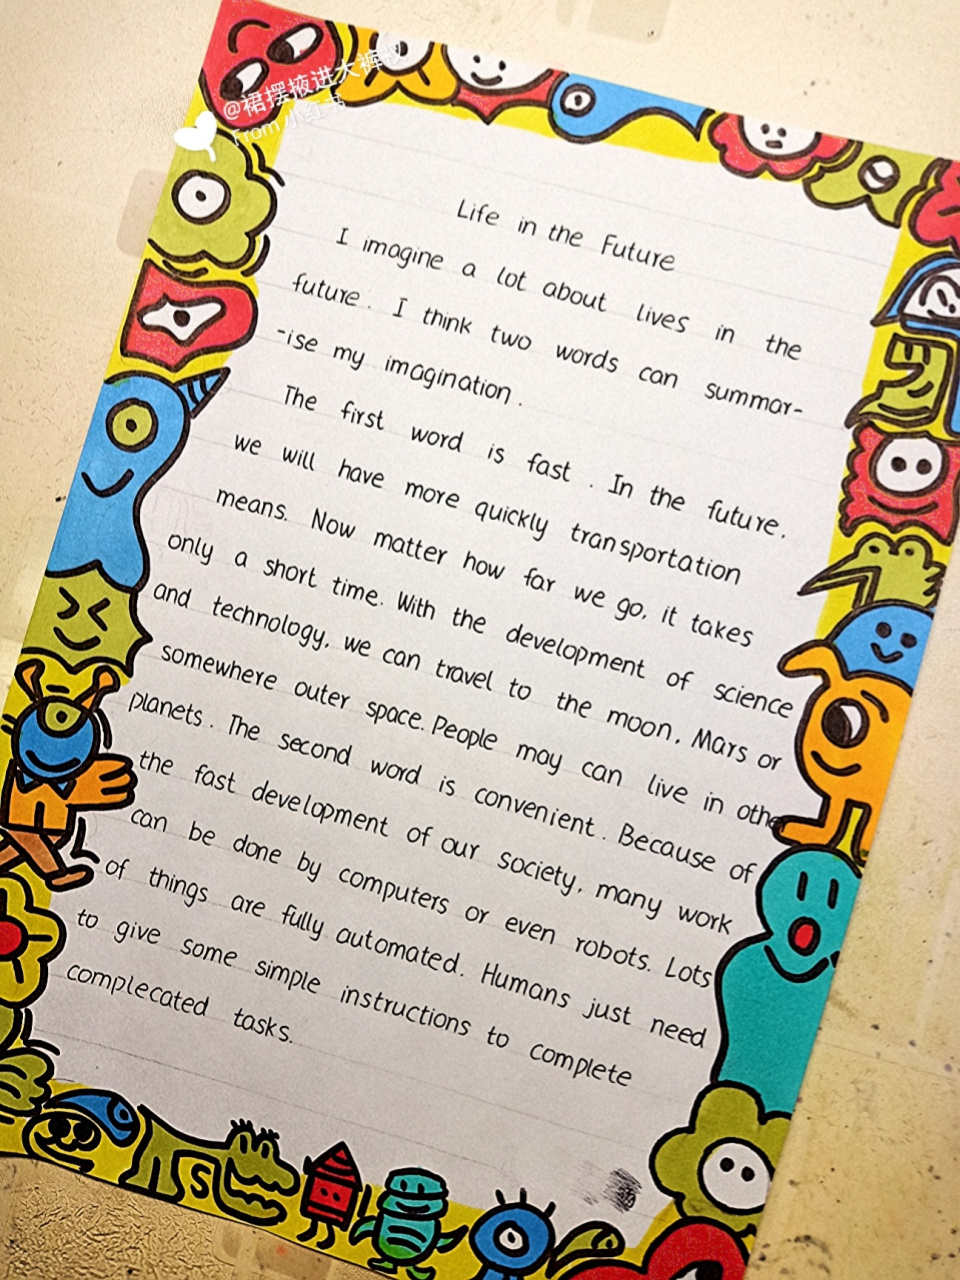 @裙摆掖进大裤衩
From 小红书
Life in the Future
I imagine a lot about lives in the
future. I think two words can summar-
-ise my imagination.
The first word is fast. In the future.
we will have more quickly transportation
means. Now matter how far we go, it takes
only a short time. With the development of science
and technology, we can travel to the moon, Mars or
somewhere outer space. People may can live in other
planets. The second word is convenient. Because of
the fast development of our society, many work
can be done by computers or even robots. Lots
of things are fully automated. Humans just need
to give some simple instructions to complete
complecated tasks.